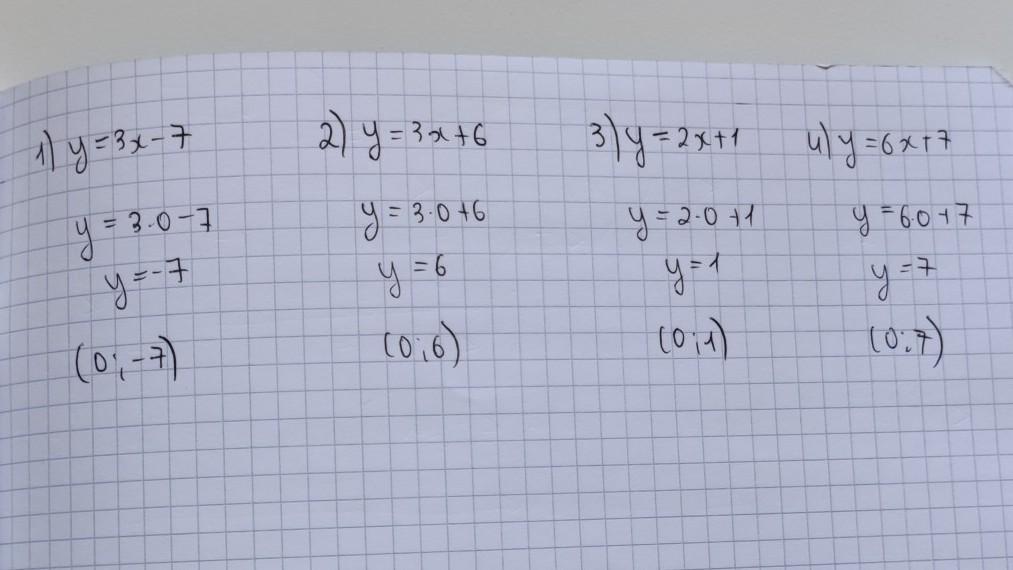 1) y=3x-7
y=3·0-7
y=-7
(0;-7)
2) y=3x+6
y=3·0+6
y=6
(0;6)
3) y=2x+1
y=2·0+1
y=1
(0;1)
4) y=6x+7
y=6·0+7
y=7
(0;7)